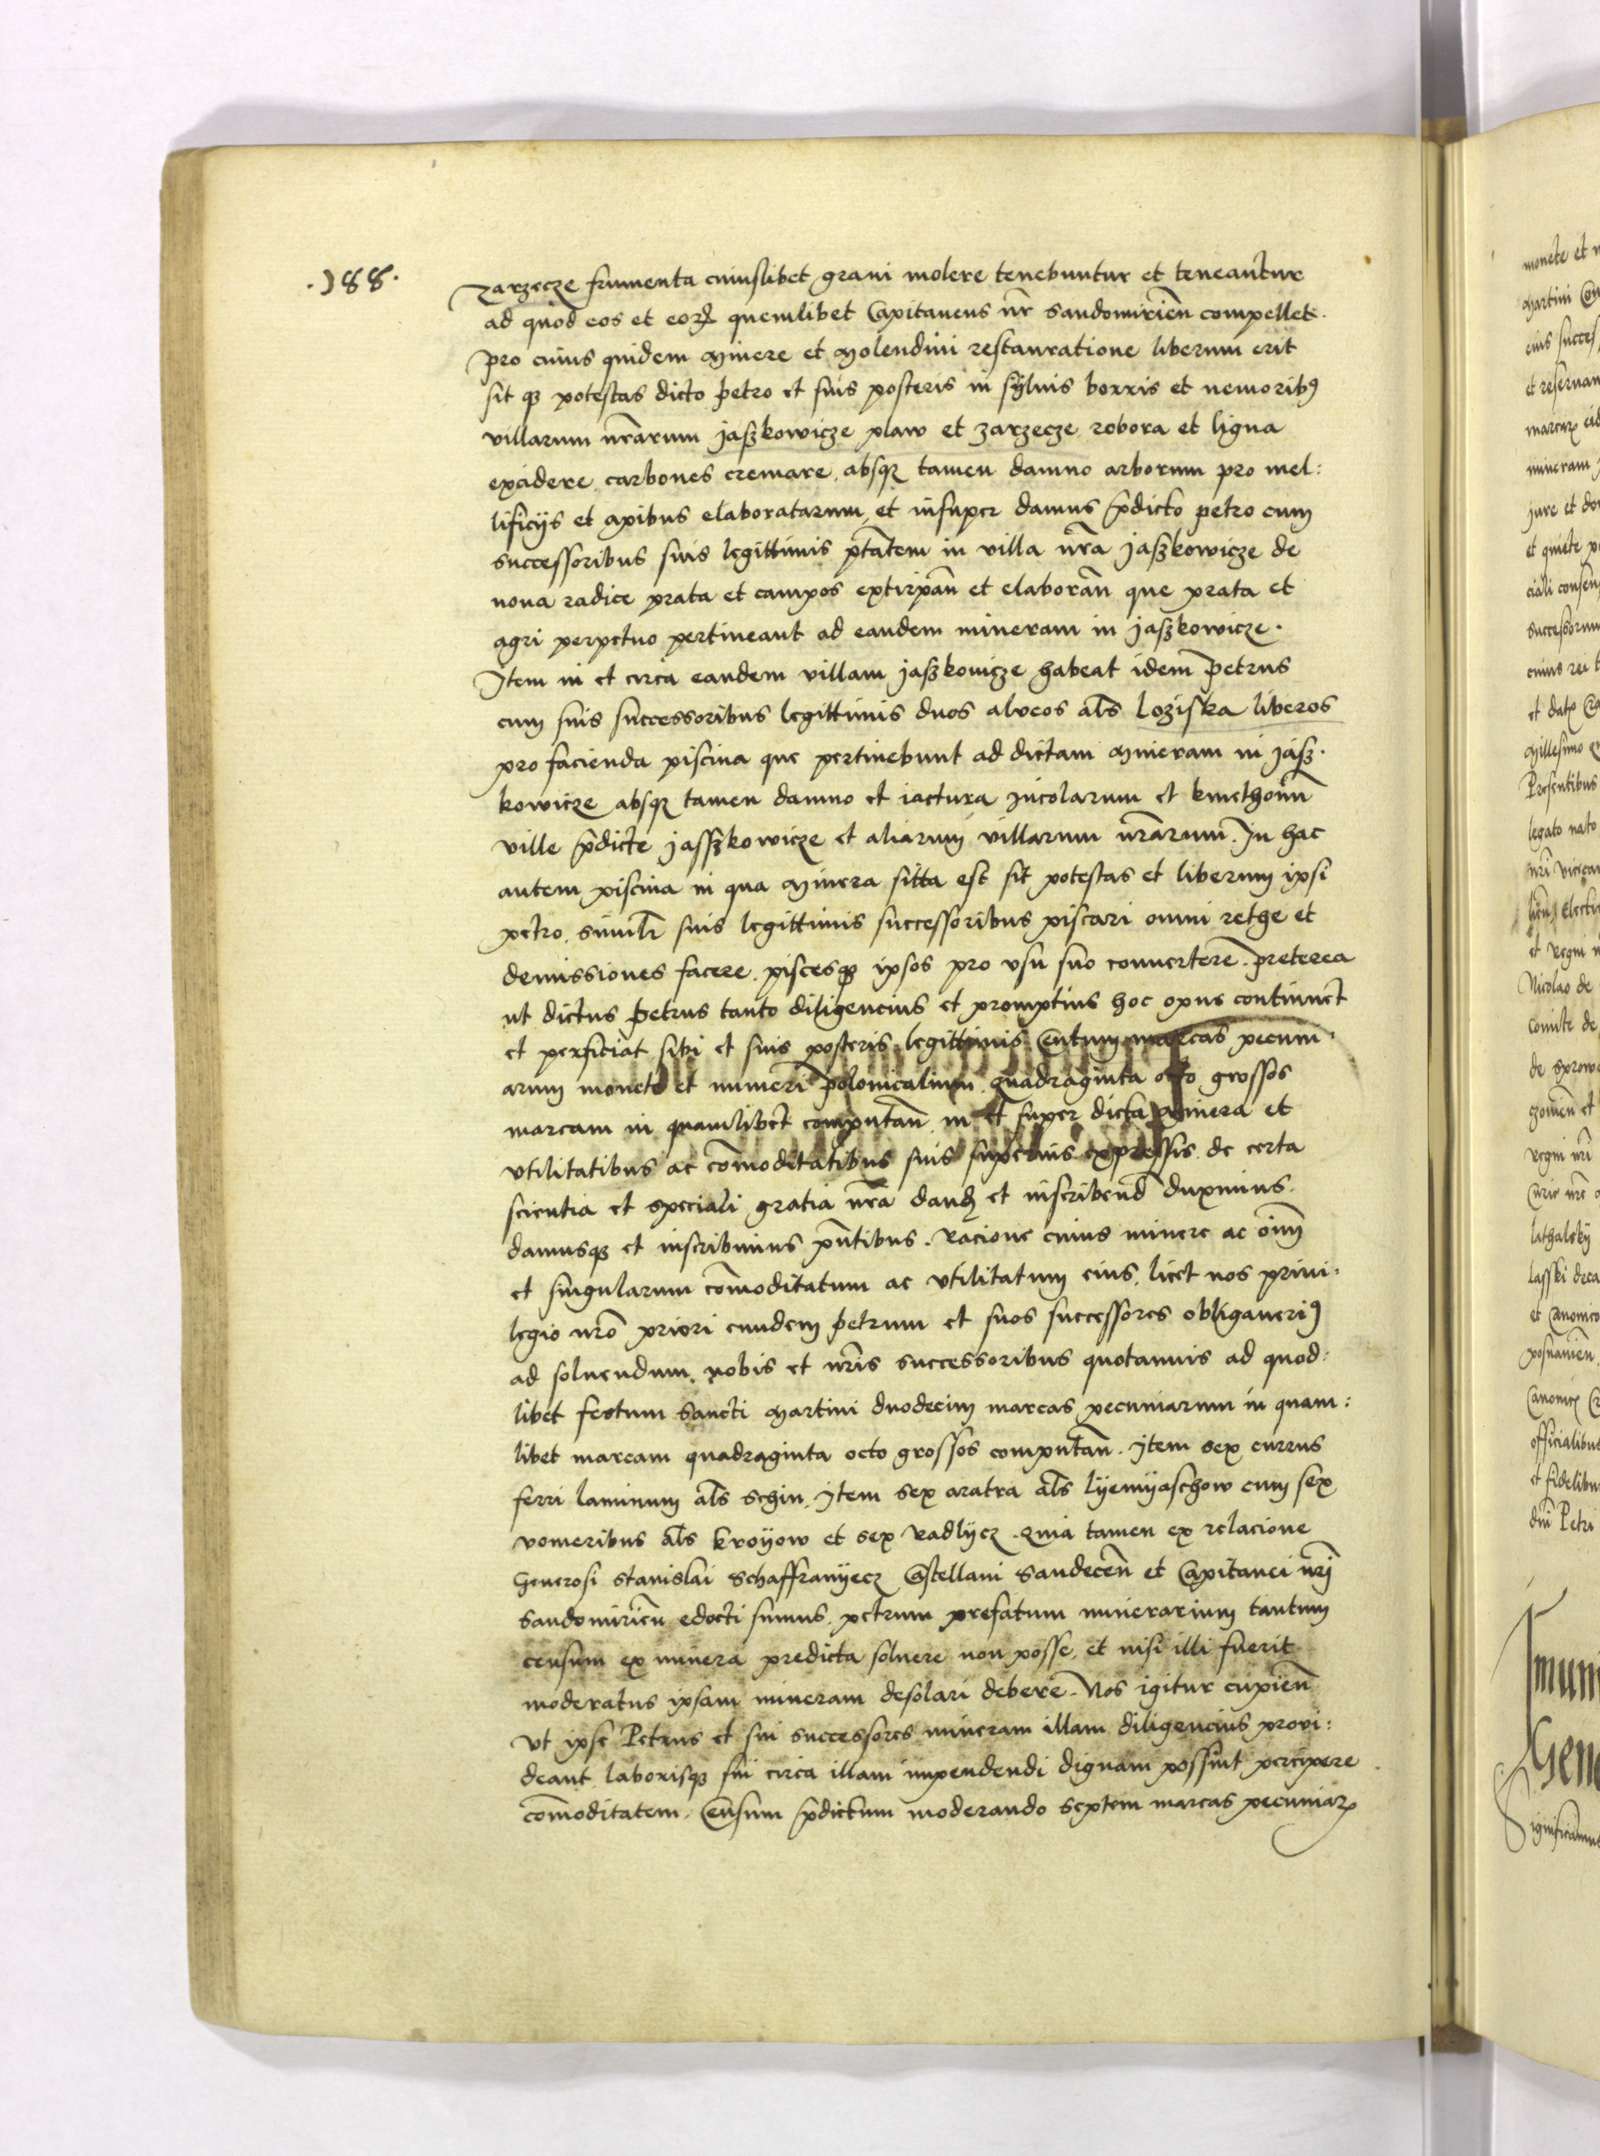 .188.
Zarzecze frumenta cuiuslibet grani molere tenebuntur et teneantur
ad quod eos et eorꝝ quemlibet Capitaneus nr̄ Sandomirien̄ compellet.
Pro cuius quidem Minere et Molendini restauratione liberum erit
sit qꝫ potestas dicto petro et suis posteris in sylvis borris et nemoribꝰ
villarum nr̄arum Jaszkowicze plaw et zarzecze robora et ligna
excidere, carbones cremare, absqꝫ tamen damno arborum pro mel:
lificijs et apibus elaboratarum, et insuper damus p̄dicto petro cum
successoribus suis legittimis ptātem in villa nr̄a Jaszkowicze de
nova radice prata et campos extirpan̄ et elaboran̄ que prata et
agri perpetuo pertineant ad eandem mineram in Jaszkowicze.
Item in et circa eandem villam Jaszkovicze habeat idem Petrus
cum suis successoribus legittimis duos alveos als̄ Loziska liberos
pro facienda piscina que pertinebunt ad dictam Mineram in Jasz.
kowicze absqꝫ tamen damno et iactura Incolarum et kmethonum
ville p̄dicte Jasszkowicze et aliarum villarum nr̄arum. In hac
autem piscina in qua Minera sitta est sit potestas et liberum ipsi
petro, similr̄ suis legittimis successoribus piscari omni rethe et
demissiones facere, piscesqꝫ ipsos pro vsu suo convertere. Preterea
ut dictus Petrus tanto diligencius et promptius hoc opus continuet
et perficiat sibi et suis posteris legittimis Centum marcas pecuni.
arum monete et numeri polonicalium quadraginta octo grossos
marcam in quamlibet computan̄ in et super dicta Minera et
vtilitatibus ac com̄oditatibus suis superius expressis de certa
scientia et speciali gratia nr̄a dand̄ et inscribend̄ duximus.
damusqꝫ et inscribimus pn̄tibus. Racione cuius minere ac oīm
et singularum com̄oditatum ac vtilitatum eius, licet nos privi:
legio nr̄o priori eundem Petrum et suos successores obligaverimꝰ
ad solvendum, nobis et nr̄is successoribus quotannis ad quod:
libet festum Sancti Martini duodecim marcas pecuniarum in quam:
libet marcam quadraginta octo grossos computan̄. Item sex currus
ferri laminum als̄ schin, Item sex aratra als̄ Lyemyaschow cum sex
vomeribus als̄ kroyow et sex Radlycz. Quia tamen ex relacione
Generosi Stanislai Schaffranyecz Castellani Sandecen̄ et Capitanei nr̄i
Sandomirien̄ edocti sumus, petrum prefatum minerarium tantum
censum ex minera predicta solvere non posse, et nisi illi fuerit
moderatus ipsam mineram desolari debere. Nos igitur cupien̄
Vt ipse Petrus et sui successores mineram illam diligencius provi:
deant, laborisqꝫ sui circa illam impendendi dignam possint percipere
com̄oditatem, Censum p̄dictum moderando septem marcas pecuniarꝝ